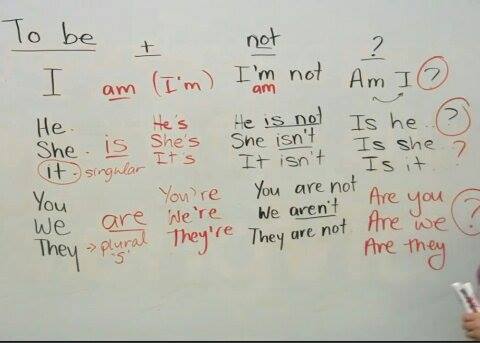 To be + not ?
I am (I'm) I'm not Am I ?
am
He. He's He is not Is he .. ?
She. is She's She isn't Is she .. ?
it. singular It's It isn't Is it ..
You You're You are not Are you
We are We're We aren't Are we ?
They → plural They're They are not. Are they
"s"